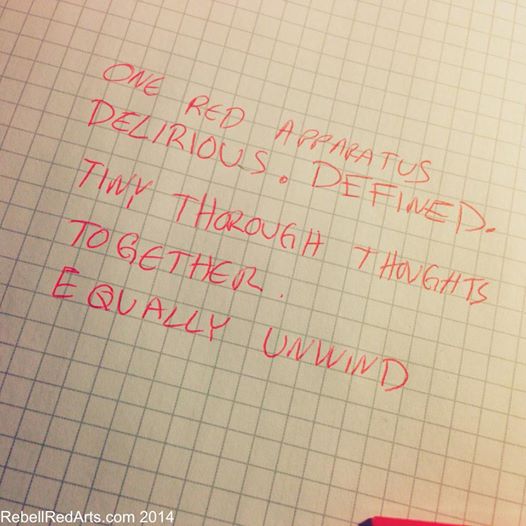 ONE RED APPARATUS
DELIRIOUS. DEFINED.
TINY THOROUGH THOUGHTS
TOGETHER.
EQUALLY UNWIND
RebellRedArts.com 2014